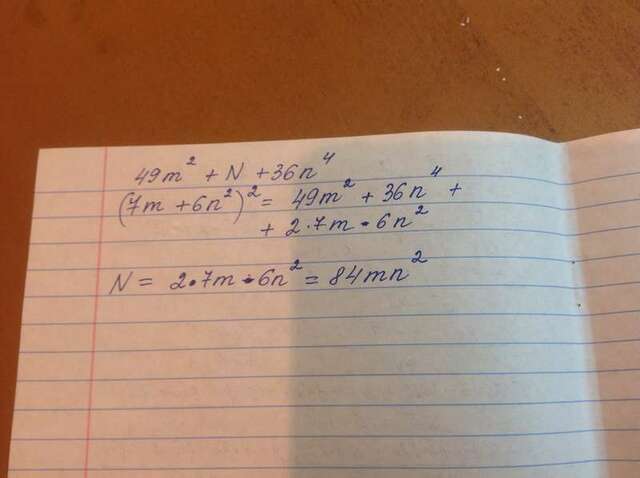 49m² + N + 36n⁴
(7m + 6n²)² = 49m² + 36n⁴ +
+ 2·7m·6n²
N = 2·7m·6n² = 84mn²